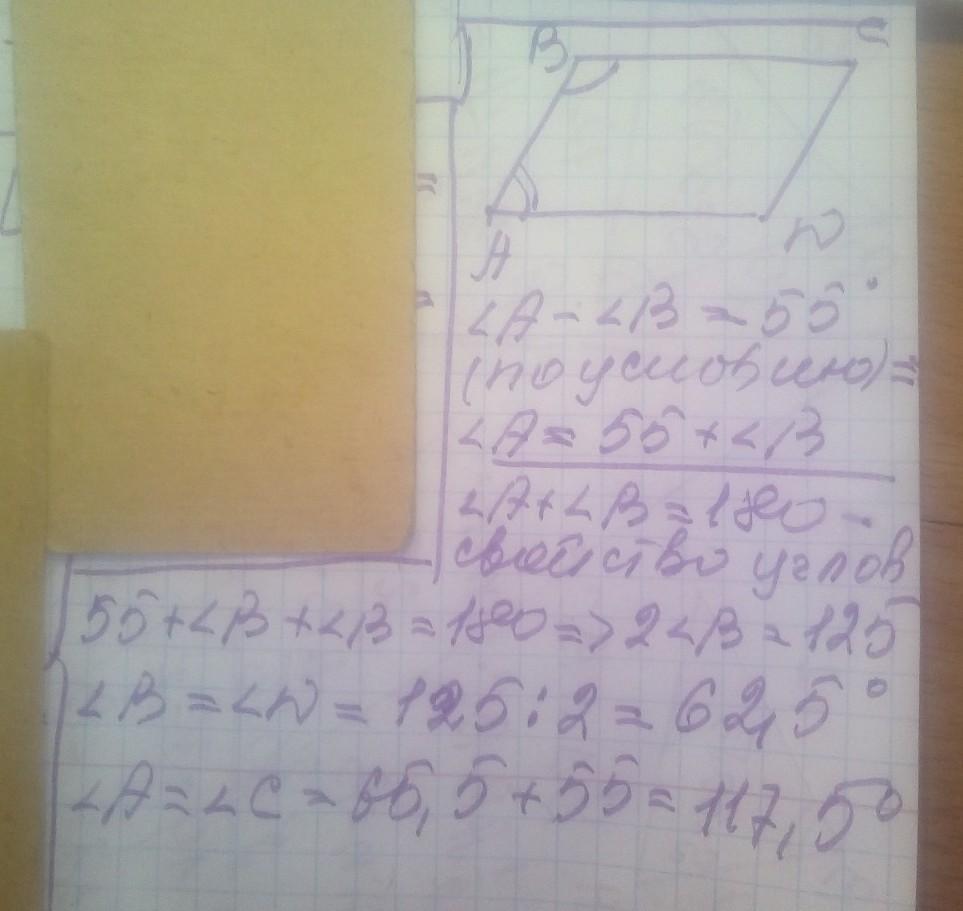 B C
A D
∠A - ∠B = 55°
(по условию) =
∠A = 55 + ∠B
∠A + ∠B = 180 -
свойство углов
55 + ∠B + ∠B = 180 => 2∠B = 125
∠B = ∠D = 125 : 2 = 62,5°
∠A = ∠C = 65,5 + 55 = 117,5°